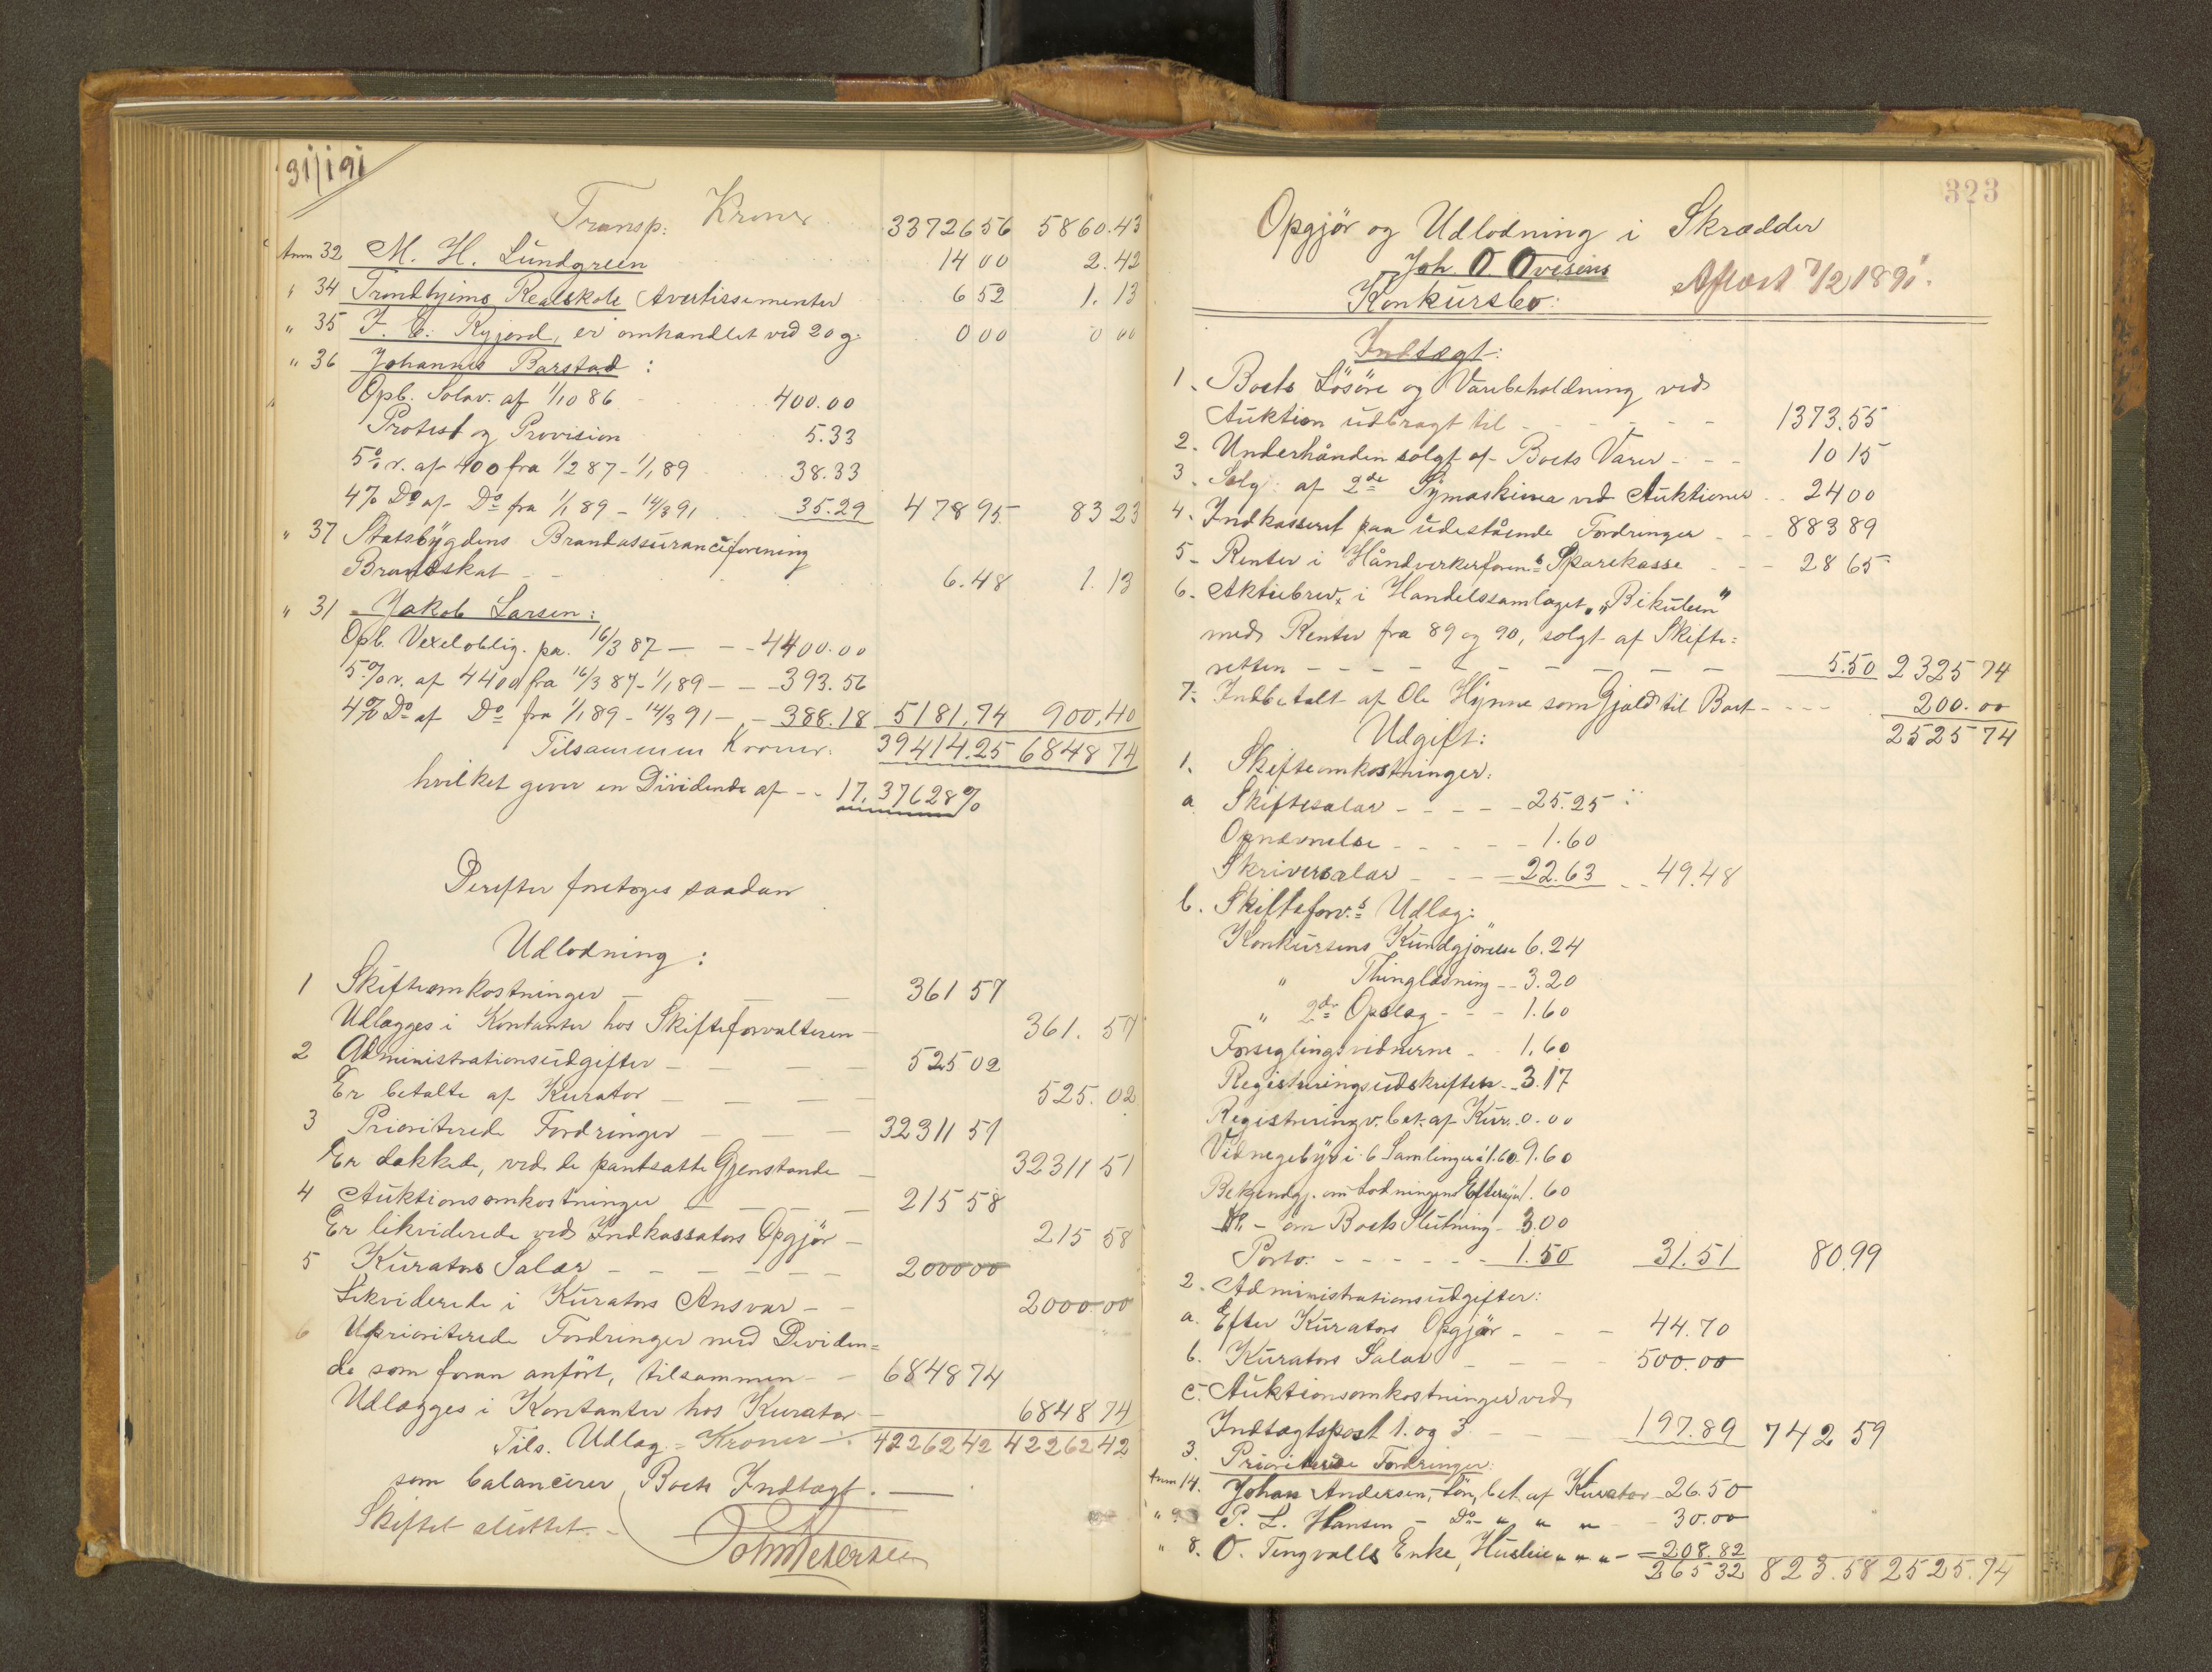 31/1 91
Transp. Kroner 33726 56 5860.43
Anm 32 M. H. Lundgreen 14 00 2.42
" 34 Trondhjems Realskole Avertissementer 6 52 1.13
" 35 F. C. Ryjord, er omhandlet ved 20 g. 0 00 0 00
" 36 Johannes Barstad :
Opb. Solav. af 1/10 86 400.00
Protest og Provision 5.33
5% r. af 400 fra 1/2 87 - 1/1 89 38.33
4% Do af Do fra 1/1 89 - 14/3 91 35.29 478 95 83 23
" 37 Statsbygdens Brandassuranceforening
Brandskat - - 6.48 1.13
" 31 Jakob Larsen :
Opb. Vexeloblig. pr. 16/3 87 - - - 4400.00
5% r. af 4400 fra 16/3 87 - 1/1 89 - - - 393.56
4% Do af Do fra 1/1 89 - 14/3 91 - - 388.18 5181.74 900.40
Tilsammen Kroner. 39414.25 6848 74
hvilket giver en Dividende af - - 17.37628%
Derefter foretoges saadan
Udlodning :
1 Skifteomkostninger - - - 361 57
Udlægges i Kontanter hos Skifteforvalteren - 361.57
2 Administrationsudgifter - - - - 525 02
Er betalte af Kurator - - - - 525.02
3 Prioriterede Fordringer - - - 32311 51
Er dækkede, ved de pantsatte Gjenstande - 32311 51
4 Auktionsomkostninger - - - - 215 58
Er likviderede ved Indkassators Opgjör - 215 58
5 Kurators Salær - - - - - - 2000 00
Likviderede i Kurators Ansvar - - 2000.00
6 Uprioriterede Fordringer med Dividen=
de som foran anfört, tilsammen - - 6848 74
Udlægges i Kontanter hos Kurator - 6848 74
Tils. Udlag = Kroner - : 42262 42 42262 42
som balancerer Boets Indtægt. -
Skiftet sluttet. -
323
Opgjör og Udlodning i Skrædder
Joh O Ovesens
Konkursbo: Aflæst 7/2 1891.
Indtægt :
1. Boets Lösöre og Varebeholdning ved
Auktion udbragt til - - - - - - 1373.55
2. Underhånden solgt af Boets Varer - - - 10 15
3. Salg af 2de Symaskiner ved Auktioner - - 24 00
4. Indkasseret paa udestående Fordringer - - - 883 89
5. Renter i Håndverkerforen.s Sparekasse - - - 28 65
6. Aktiebrev, i Handelssamlaget "Bikuben"
med Renter fra 89 og 90, solgt af Skifte=
retten - - - - - - - - - 5.50 2325 74
7. Indbetalt af Ole Hynne som Gjæld til Boet - - - - 200.00
Udgift : 2525 74
1. Skifteomkostninger :
a Skiftesalær - - - - - 25.25
Opnævnelse - - - - - 1.60
Skriversalær - - - 22.63 - - 49.48
b. Skifteforv.s Udlæg :
Konkursens Kundgjørelse 6.24
" Thinglæsning - - 3.20
" 2de Opslag - - - 1.60
Forseglingsvidnerne - - 1.60
Registreringsudskriften - - 3.17
Registreringv. bet. af Kur. 0.00
Vidnegebyr i 6 Samlinger á 1.60. 9.60
Bekjendgj. om Lodningens Eftersyn 1.60
Do - om Boets Slutning - 3.00
Porto - - - - - - 1.50 31.51 80.99
2. Administrationsudgifter :
a. Efter Kurators Opgjör - - - 44.70
b. Kurators Salær - - - - 500.00
c. Auktionsomkostninger ved
Indtægtspost 1. og 3 - - - - 197.89 742 59
3. Prioriterede Fordringer :
Anm 14. Johan Andersen, Lön, bet. af Kurator - 26.50
" 9 P. L. Hansen - Do - " " " - 30.00
" 8. O. Tengvalls Enke, Husleie " " " - 208.82
265 32 823.58 2525.74